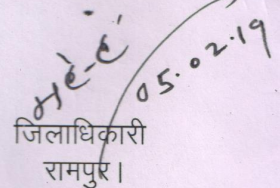 05.02.19
जिलाधिकारी
रामपुर।